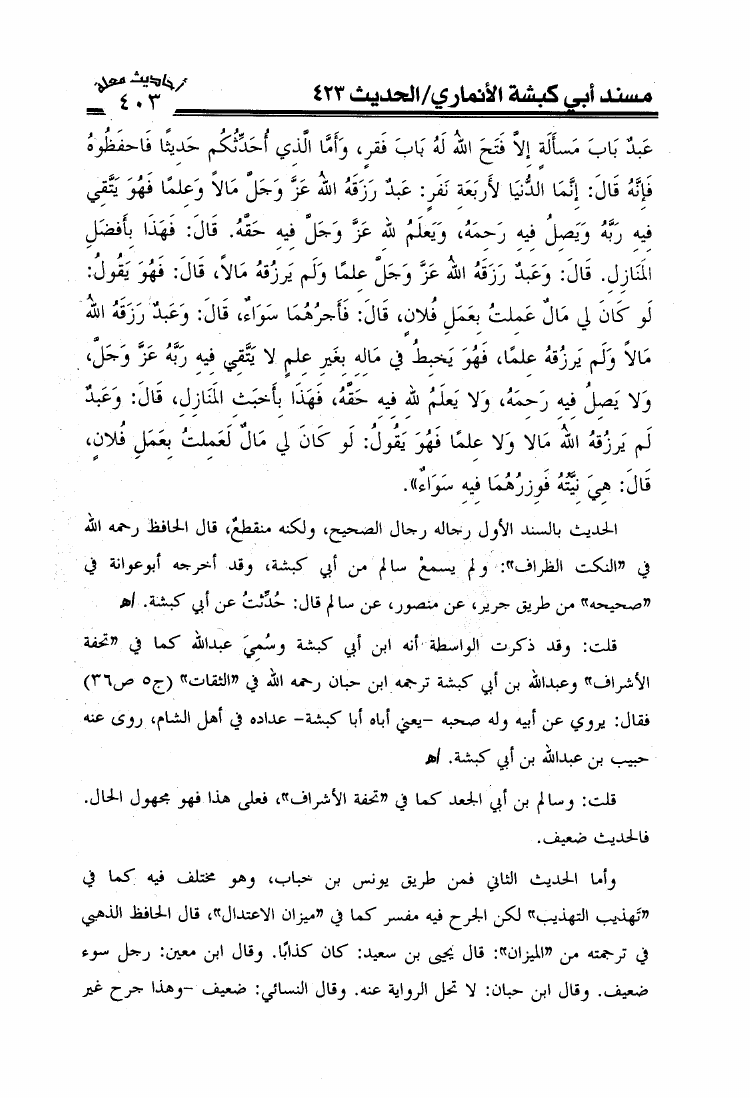 مسند أبي كبشة الأنماري/الحديث ٤٢٣
أحاديث معلة
٤٠٣
عَبدٌ بَابَ مَسأَلَةٍ إِلاَّ فَتَحَ اللهُ لَهُ بَابَ فَقرٍ، وَأَمَّا الَّذِي أُحَدِّثُكُم حَدِيثًا فَاحفَظُوهُ
فَإِنَّهُ قَالَ: إِنَّمَا الدُّنيَا لأَربَعَةِ نَفَرٍ: عَبدٌ رَزَقَهُ اللهُ عَزَّ وَجَلَّ مَالاً وَعِلمًا فَهُوَ يَتَّقِي
فِيهِ رَبَّهُ وَيَصِلُ فِيهِ رَحِمَهُ، وَيَعلَمُ للهِ عَزَّ وَجَلَّ فِيهِ حَقَّهُ. قَالَ: فَهَذَا بِأَفضَلِ
المَنَازِلِ. قَالَ: وَعَبدٌ رَزَقَهُ اللهُ عَزَّ وَجَلَّ عِلمًا وَلَم يَرزُقهُ مَالاً، قَالَ: فَهُوَ يَقُولُ:
لَو كَانَ لِي مَالٌ عَمِلتُ بِعَمَلِ فُلاَنٍ، قَالَ: فَأَجرُهُمَا سَوَاءٌ، قَالَ: وَعَبدٌ رَزَقَهُ اللهُ
مَالاً وَلَم يَرزُقهُ عِلمًا، فَهُوَ يَخبِطُ فِي مَالِهِ بِغَيرِ عِلمٍ لا يَتَّقِي فِيهِ رَبَّهُ عَزَّ وَجَلَّ،
وَلا يَصِلُ فِيهِ رَحِمَهُ، وَلا يَعلَمُ للهِ فِيهِ حَقَّهُ، فَهَذَا بِأَخبَثِ المَنَازِلِ، قَالَ: وَعَبدٌ
لَم يَرزُقهُ اللهُ مَالا وَلا عِلمًا فَهُوَ يَقُولُ: لَو كَانَ لِي مَالٌ لَعَمِلتُ بِعَمَلِ فُلاَنٍ،
قَالَ: هِيَ نِيَّتُهُ فَوِزرُهُمَا فِيهِ سَوَاءٌ».
الحديث بالسند الأول رجاله رجال الصحيح، ولكنه منقطعٌ، قال الحافظ رحمه الله
في «النكت الظراف»: ولم يسمعْ سالم من أبي كبشة، وقد أخرجه أبوعوانة في
«صحيحه» من طريق جرير، عن منصور، عن سالم قال: حُدِّثتُ عن أبي كبشة. اهـ
قلت: وقد ذكرت الواسطة أنه ابن أبي كبشة وسُمِيَ عبدالله كما في «تحفة
الأشراف» وعبدالله بن أبي كبشة ترجمه ابن حبان رحمه الله في «الثقات» (ج٥ ص٣٦)
فقال: يروي عن أبيه وله صحبه -يعني أباه أبا كبشة- عداده في أهل الشام، روى عنه
حبيب بن عبدالله بن أبي كبشة. اهـ
قلت: وسالم بن أبي الجعد كما في «تحفة الأشراف»، فعلى هذا فهو مجهول الحال.
فالحديث ضعيف.
وأما الحديث الثاني فمن طريق يونس بن خباب، وهو مختلف فيه كما في
«تهذيب التهذيب» لكن الجرح فيه مفسر كما في «ميزان الاعتدال»، قال الحافظ الذهبي
في ترجمته من «الميزان»: قال يحيى بن سعيد: كان كذابًا. وقال ابن معين: رجل سوء
ضعيف. وقال ابن حبان: لا تحل الرواية عنه. وقال النسائي: ضعيف -وهذا جرح غير